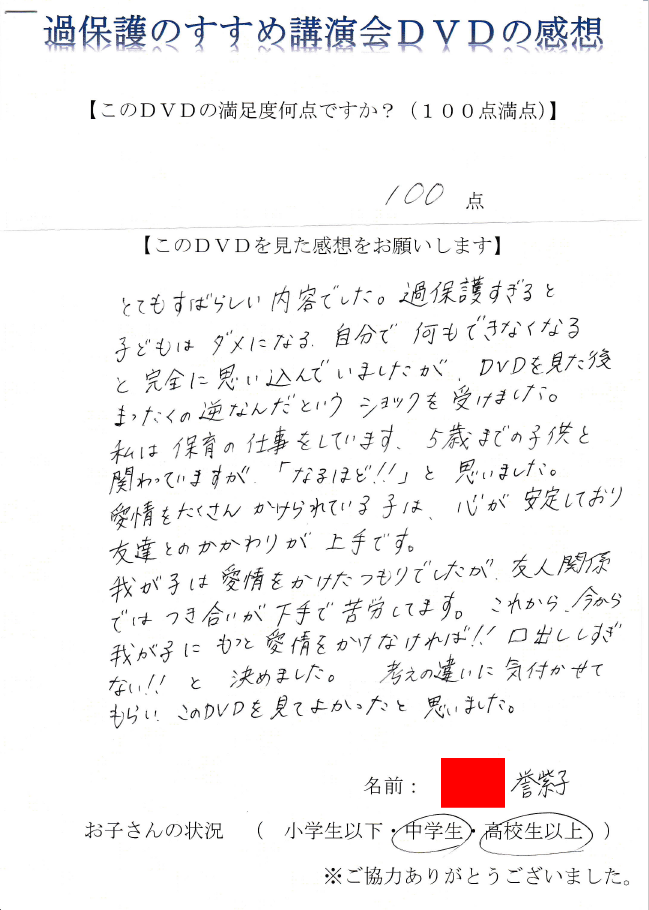 過保護のすすめ講演会ＤＶＤの感想
【このＤＶＤの満足度何点ですか？（１００点満点）】
100 点
【このＤＶＤを見た感想をお願いします】
とてもすばらしい内容でした。過保護すぎると
子どもは ダメになる、自分で 何もできなくなる
と 完全に思い込んでいましたが、DVDを見た後
まったくの逆なんだという ショックを受けました。
私は 保育の仕事をしています、5歳までの子供と
関わっていますが、「なるほど!!」と 思いました。
愛情をたくさん かけられている子は、心が 安定しており
友達とのかかわりが 上手です。
我が子は 愛情をかけたつもりでしたが、友人関係
では つき合いが下手で苦労してます。これから、今から
我が子に もっと 愛情をかけなければ!! 口出ししすぎ
ない!! と 決めました。 考えの違いに 気付かせて
もらい、このDVDを見てよかったと 思いました。
名前： 誉紫子
お子さんの状況 （ 小学生以下・中学生・高校生以上 ）
※ご協力ありがとうございました。